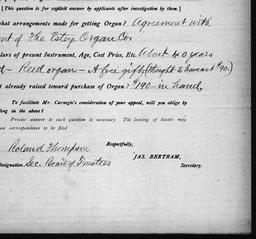 [This question is for explicit answer by applicants after investigation by them.]
what arrangements made for getting Organ? Agreement with
ent of The Estey Organ Co.
lars of present Instrument, Age, Cost Price, Etc. About 40 years
Reed organ - A free gift (thought to have cost $90.)
t already raised toward purchase of Organ? $190 - in hand,
To facilitate Mr. Carnegie's consideration of your appeal, will you oblige by
ling in the above?
Precise answer to each question is necessary. The leaving of blanks may
ther correspondence to be filed
Respectfully,
Roland Thompson
JAS. BERTRAM,
Designation Sec. Board of Trustees
Secretary.